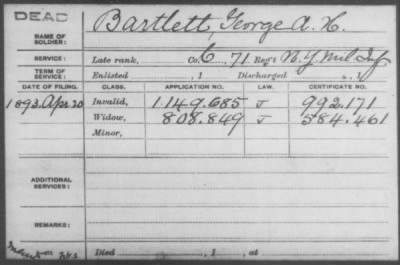 DEAD
NAME OF SOLDIER: Bartlett, George A. H.
SERVICE: Late rank, Co. C, 71 Reg't N.Y. Mil Inf
TERM OF SERVICE: Enlisted , 1 Discharged , 1
DATE OF FILING. CLASS. APPLICATION NO. LAW. CERTIFICATE NO.
1893, Apr. 20 Invalid, 1.149.685 J 992.171
Widow, 808.849 J 584.461
Minor,
ADDITIONAL SERVICES:
REMARKS:
Died , 1 , at